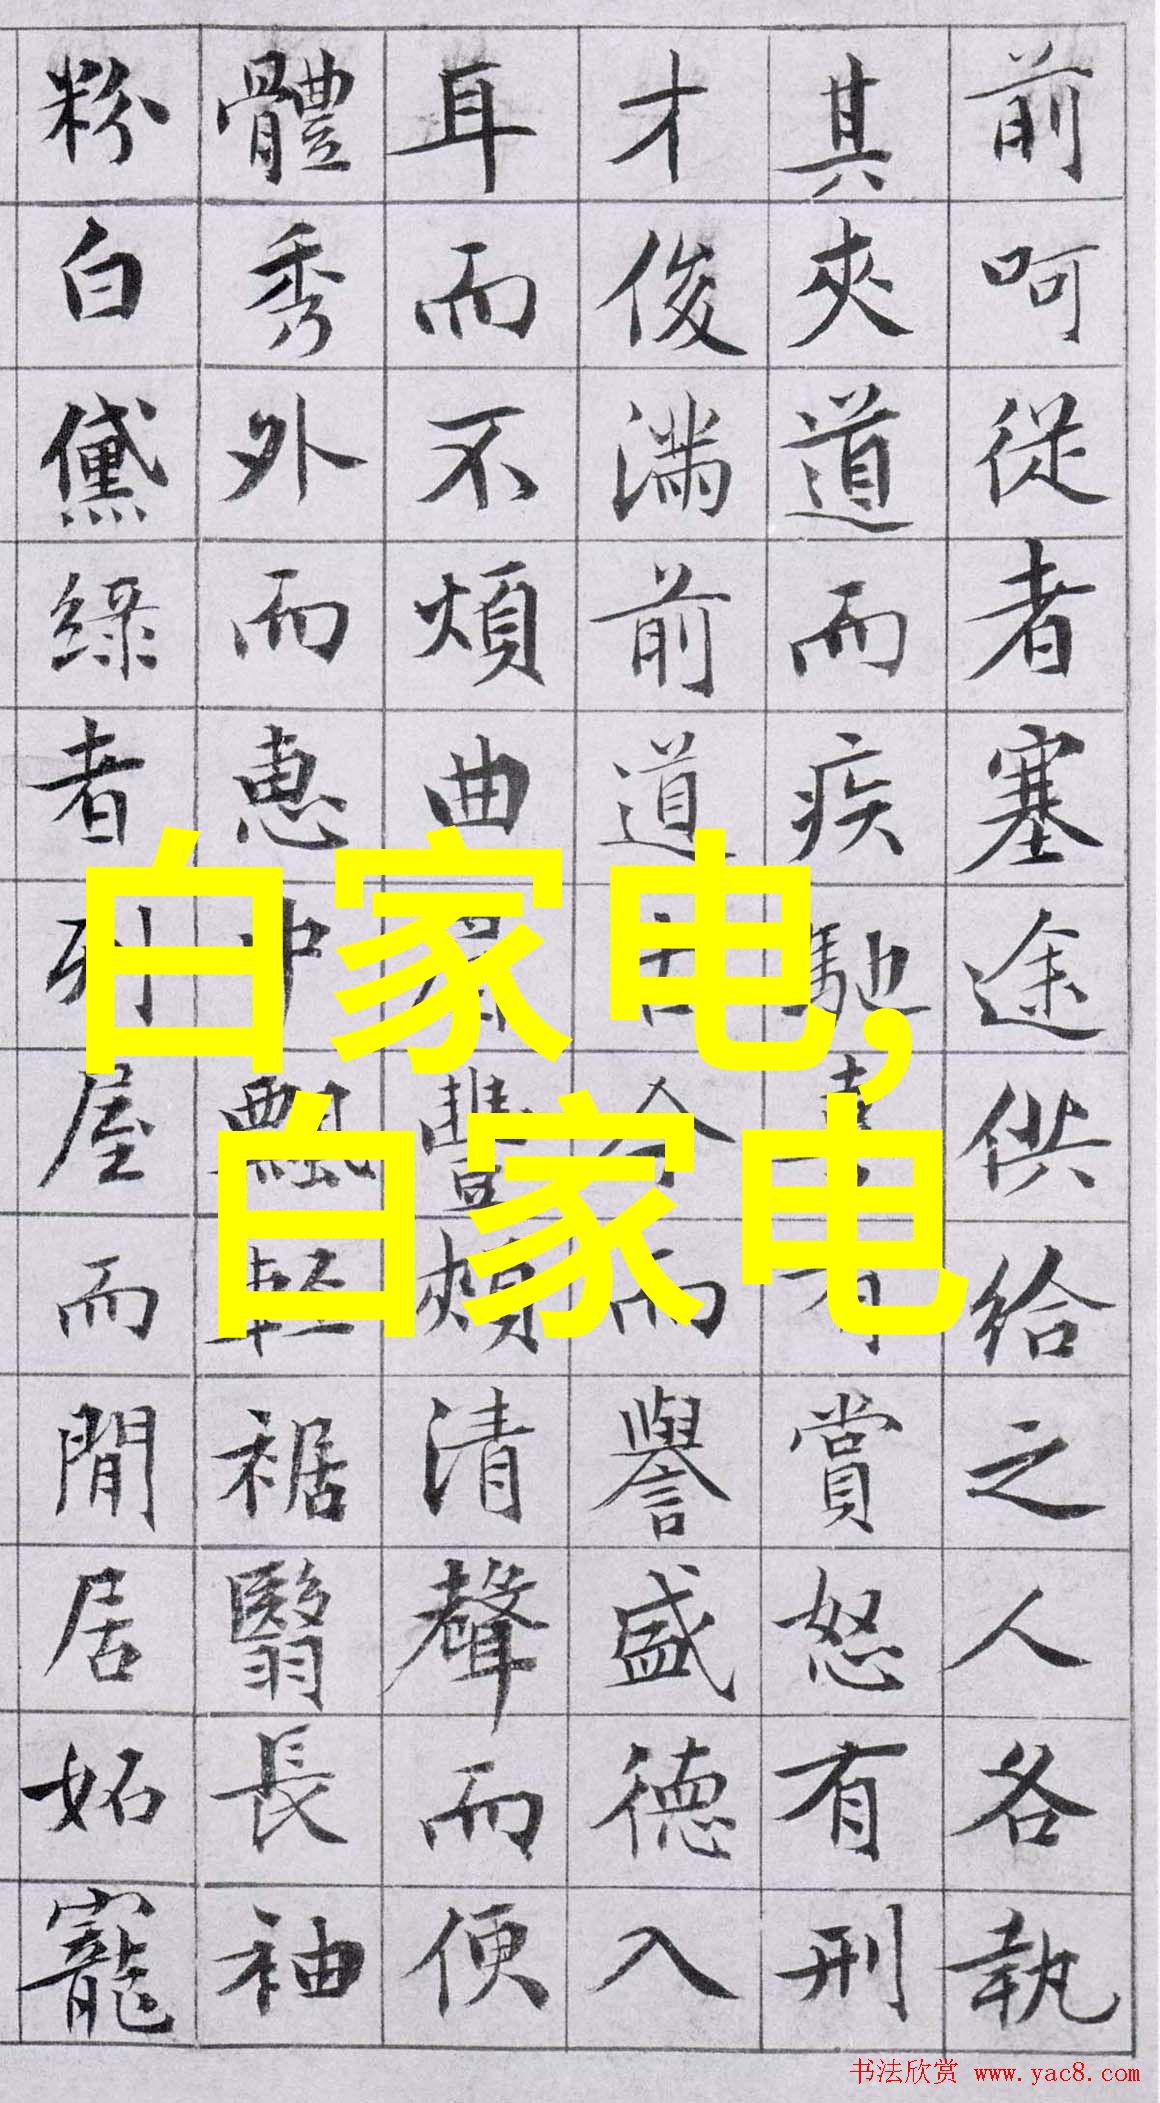 前呵從者塞途供給之人各執
其夾道而疾馳喜有賞怒有刑
才俊滿前道古今而譽盛德入
耳而不煩曲眉豐頰清聲而便
體秀外而惠中飄輕裾翳長袖
粉白黛綠者列屋而閒居妬寵
白家电,
白家电
书法欣赏 www.yac8.com